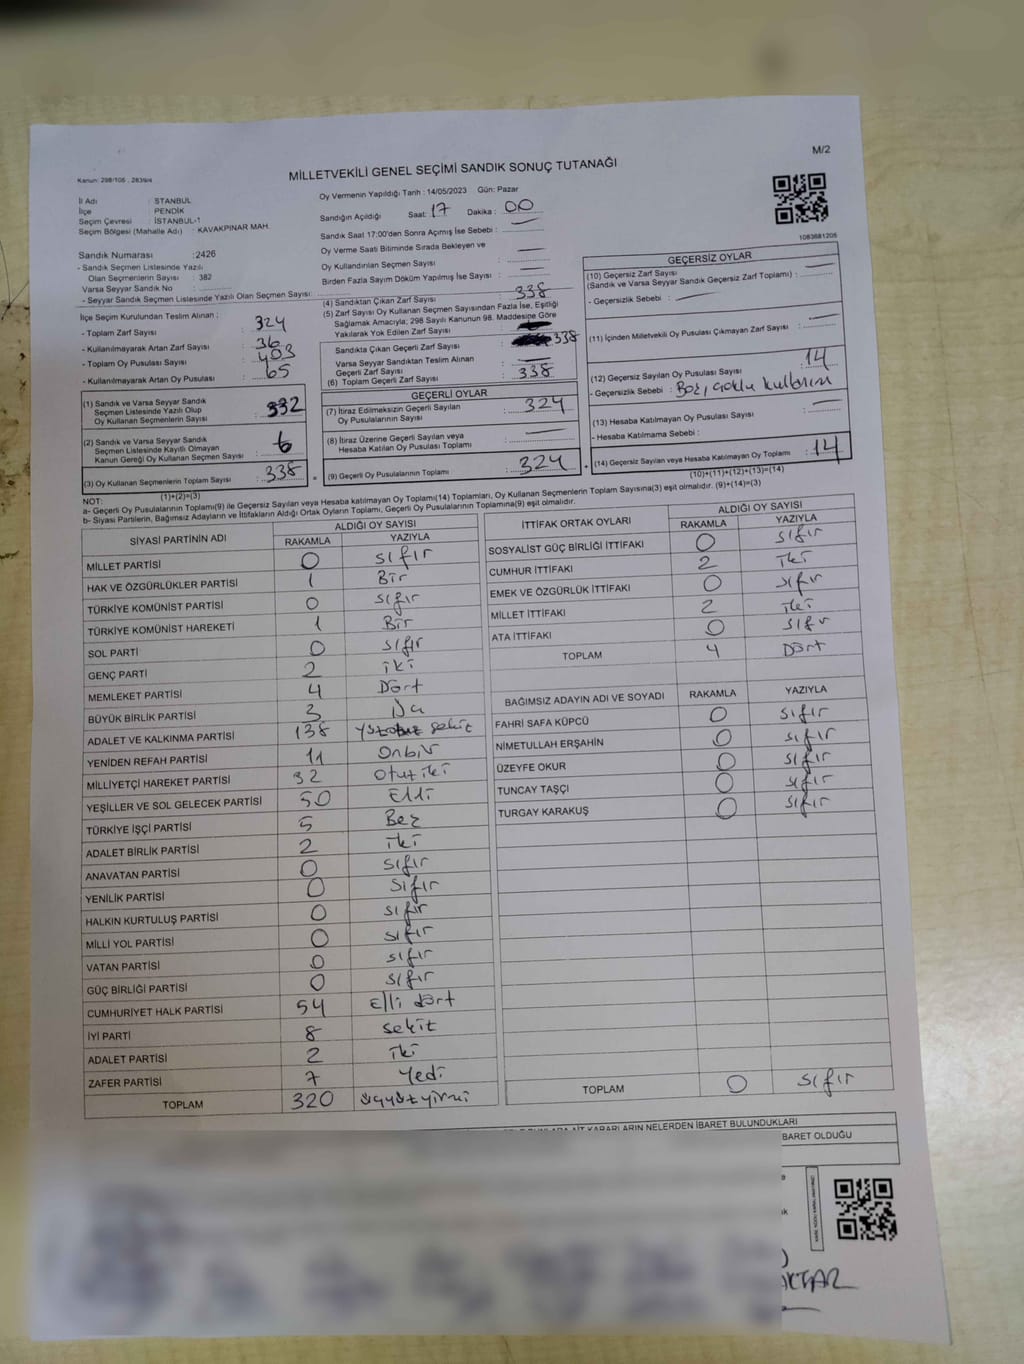 M/2
Kanun: 298/105 , 2839/4
MİLLETVEKİLİ GENEL SEÇİMİ SANDIK SONUÇ TUTANAĞI
İl Adı : STANBUL
İlçe : PENDİK
Seçim Çevresi : İSTANBUL-1
Seçim Bölgesi (Mahalle Adı) : KAVAKPINAR MAH.
Sandık Numarası : 2426
- Sandık Seçmen Listesinde Yazılı
Olan Seçmenlerin Sayısı : 382
Varsa Seyyar Sandık No :
- Seyyar Sandık Seçmen Listesinde Yazılı Olan Seçmen Sayısı:
İlçe Seçim Kurulundan Teslim Alınan ;
- Toplam Zarf Sayısı : 324
- Kullanılmayarak Artan Zarf Sayısı : 36
- Toplam Oy Pusulası Sayısı : 403
- Kullanılmayarak Artan Oy Pusulası : 65
(1) Sandık ve Varsa Seyyar Sandık
Seçmen Listesinde Yazılı Olup
Oy Kullanan Seçmenlerin Sayısı : 332
(2) Sandık ve Varsa Seyyar Sandık
Seçmen Listesinde Kayıtlı Olmayan
Kanun Gereği Oy Kullanan Seçmen Sayısı : 6
(3) Oy Kullanan Seçmenlerin Toplam Sayısı : 338
(1)+(2)=(3)
Oy Vermenin Yapıldığı Tarih : 14/05/2023 Gün: Pazar
Sandığın Açıldığı Saat: 17 Dakika : 00
Sandık Saat 17:00'den Sonra Açımış İse Sebebi :
Oy Verme Saati Bitiminde Sırada Bekleyen ve
Oy Kullandırılan Seçmen Sayısı :
Birden Fazla Sayım Döküm Yapılmış İse Sayısı :
(4) Sandıktan Çıkan Zarf Sayısı : 338
(5) Zarf Sayısı Oy Kullanan Seçmen Sayısından Fazla İse, Eşitliği
Sağlamak Amacıyla; 298 Sayılı Kanunun 98. Maddesine Göre
Yakılarak Yok Edilen Zarf Sayısı :
Sandıkta Çıkan Geçerli Zarf Sayısı : 338
Varsa Seyyar Sandıktan Teslim Alınan
Geçerli Zarf Sayısı :
(6) Toplam Geçerli Zarf Sayısı : 338
GEÇERLİ OYLAR
(7) İtiraz Edilmeksizin Geçerli Sayılan
Oy Pusulalarının Sayısı : 324
(8) İtiraz Üzerine Geçerli Sayılan veya
Hesaba Katılan Oy Pusulası Toplamı :
(9) Geçerli Oy Pusulalarının Toplamı : 324
1083681205
GEÇERSİZ OYLAR
(10) Geçersiz Zarf Sayısı
(Sandık ve Varsa Sandık Geçersiz Zarf Toplamı) :
- Geçersiz Sebebi :
(11) İçinden Milletvekili Oy Pusulası Çıkmayan Zarf Sayısı :
(12) Geçersiz Sayılan Oy Pusulası Sayısı : 14
- Geçersizlik Sebebi :
(13) Hesaba Katılmayan Oy Pusulası Sayısı :
- Hesaba Katılmama Sebebi :
(14) Geçersiz Sayılan veya Hesaba Katılmayan Oy Toplamı : 14
(10)+(11)+(12)+(13)=(14)
NOT:
a- Geçerli Oy Pusulalarının Toplamı(9) ile Geçersiz Sayılan veya Hesaba katılmayan Oy Toplamı(14) Toplamları, Oy Kullanan Seçmenlerin Toplam Sayısına(3) eşit olmalıdır. (9)+(14)=(3)
b- Siyasi Partilerin, Bağımsız Adayların ve İttifakların Aldığı Ortak Oyların Toplamı, Geçerli Oy Pusulalarının Toplamına(9) eşit olmalıdır.
SİYASİ PARTİNİN ADI ALDIĞI OY SAYISI
RAKAMLA YAZIYLA
MİLLET PARTİSİ 0 sıfır
HAK VE ÖZGÜRLÜKLER PARTİSİ 1 Bir
TÜRKİYE KOMÜNİST PARTİSİ 0 sıfır
TÜRKİYE KOMÜNİST HAREKETİ 1 Bir
SOL PARTİ 0 sıfır
GENÇ PARTİ 2 iki
MEMLEKET PARTİSİ 4 Dört
BÜYÜK BİRLİK PARTİSİ 3
ADALET VE KALKINMA PARTİSİ 138 sekiz
YENİDEN REFAH PARTİSİ 11 onbir
MİLLİYETÇİ HAREKET PARTİSİ 32 otuz iki
YEŞİLLER VE SOL GELECEK PARTİSİ 50 Elli
TÜRKİYE İŞÇİ PARTİSİ 5 Beş
ADALET BİRLİK PARTİSİ 2 iki
ANAVATAN PARTİSİ 0 sıfır
YENİLİK PARTİSİ 0 sıfır
HALKIN KURTULUŞ PARTİSİ 0 sıfır
MİLLİ YOL PARTİSİ 0 sıfır
VATAN PARTİSİ 0 sıfır
GÜÇ BİRLİĞİ PARTİSİ 0 sıfır
CUMHURİYET HALK PARTİSİ 54 Elli dört
İYİ PARTİ 8 sekiz
ADALET PARTİSİ 2 iki
ZAFER PARTİSİ 7 Yedi
TOPLAM 320 üçyüzyirmi
İTTİFAK ORTAK OYLARI ALDIĞI OY SAYISI
RAKAMLA YAZIYLA
SOSYALİST GÜÇ BİRLİĞİ İTTİFAKI 0 sıfır
CUMHUR İTTİFAKI 2 iki
EMEK VE ÖZGÜRLÜK İTTİFAKI 0 sıfır
MİLLET İTTİFAKI 2 iki
ATA İTTİFAKI 0 sıfır
TOPLAM 4 Dört
BAĞIMSIZ ADAYIN ADI VE SOYADI RAKAMLA YAZIYLA
FAHRİ SAFA KÜPCÜ 0 sıfır
NİMETULLAH ERŞAHİN 0 sıfır
ÜZEYFE OKUR 0 sıfır
TUNCAY TAŞÇI 0 sıfır
TURGAY KARAKUŞ 0 sıfır
TOPLAM 0 sıfır
AİT KARARLARIN NELERDEN İBARET BULUNDUKLARI
BARET OLDUĞU